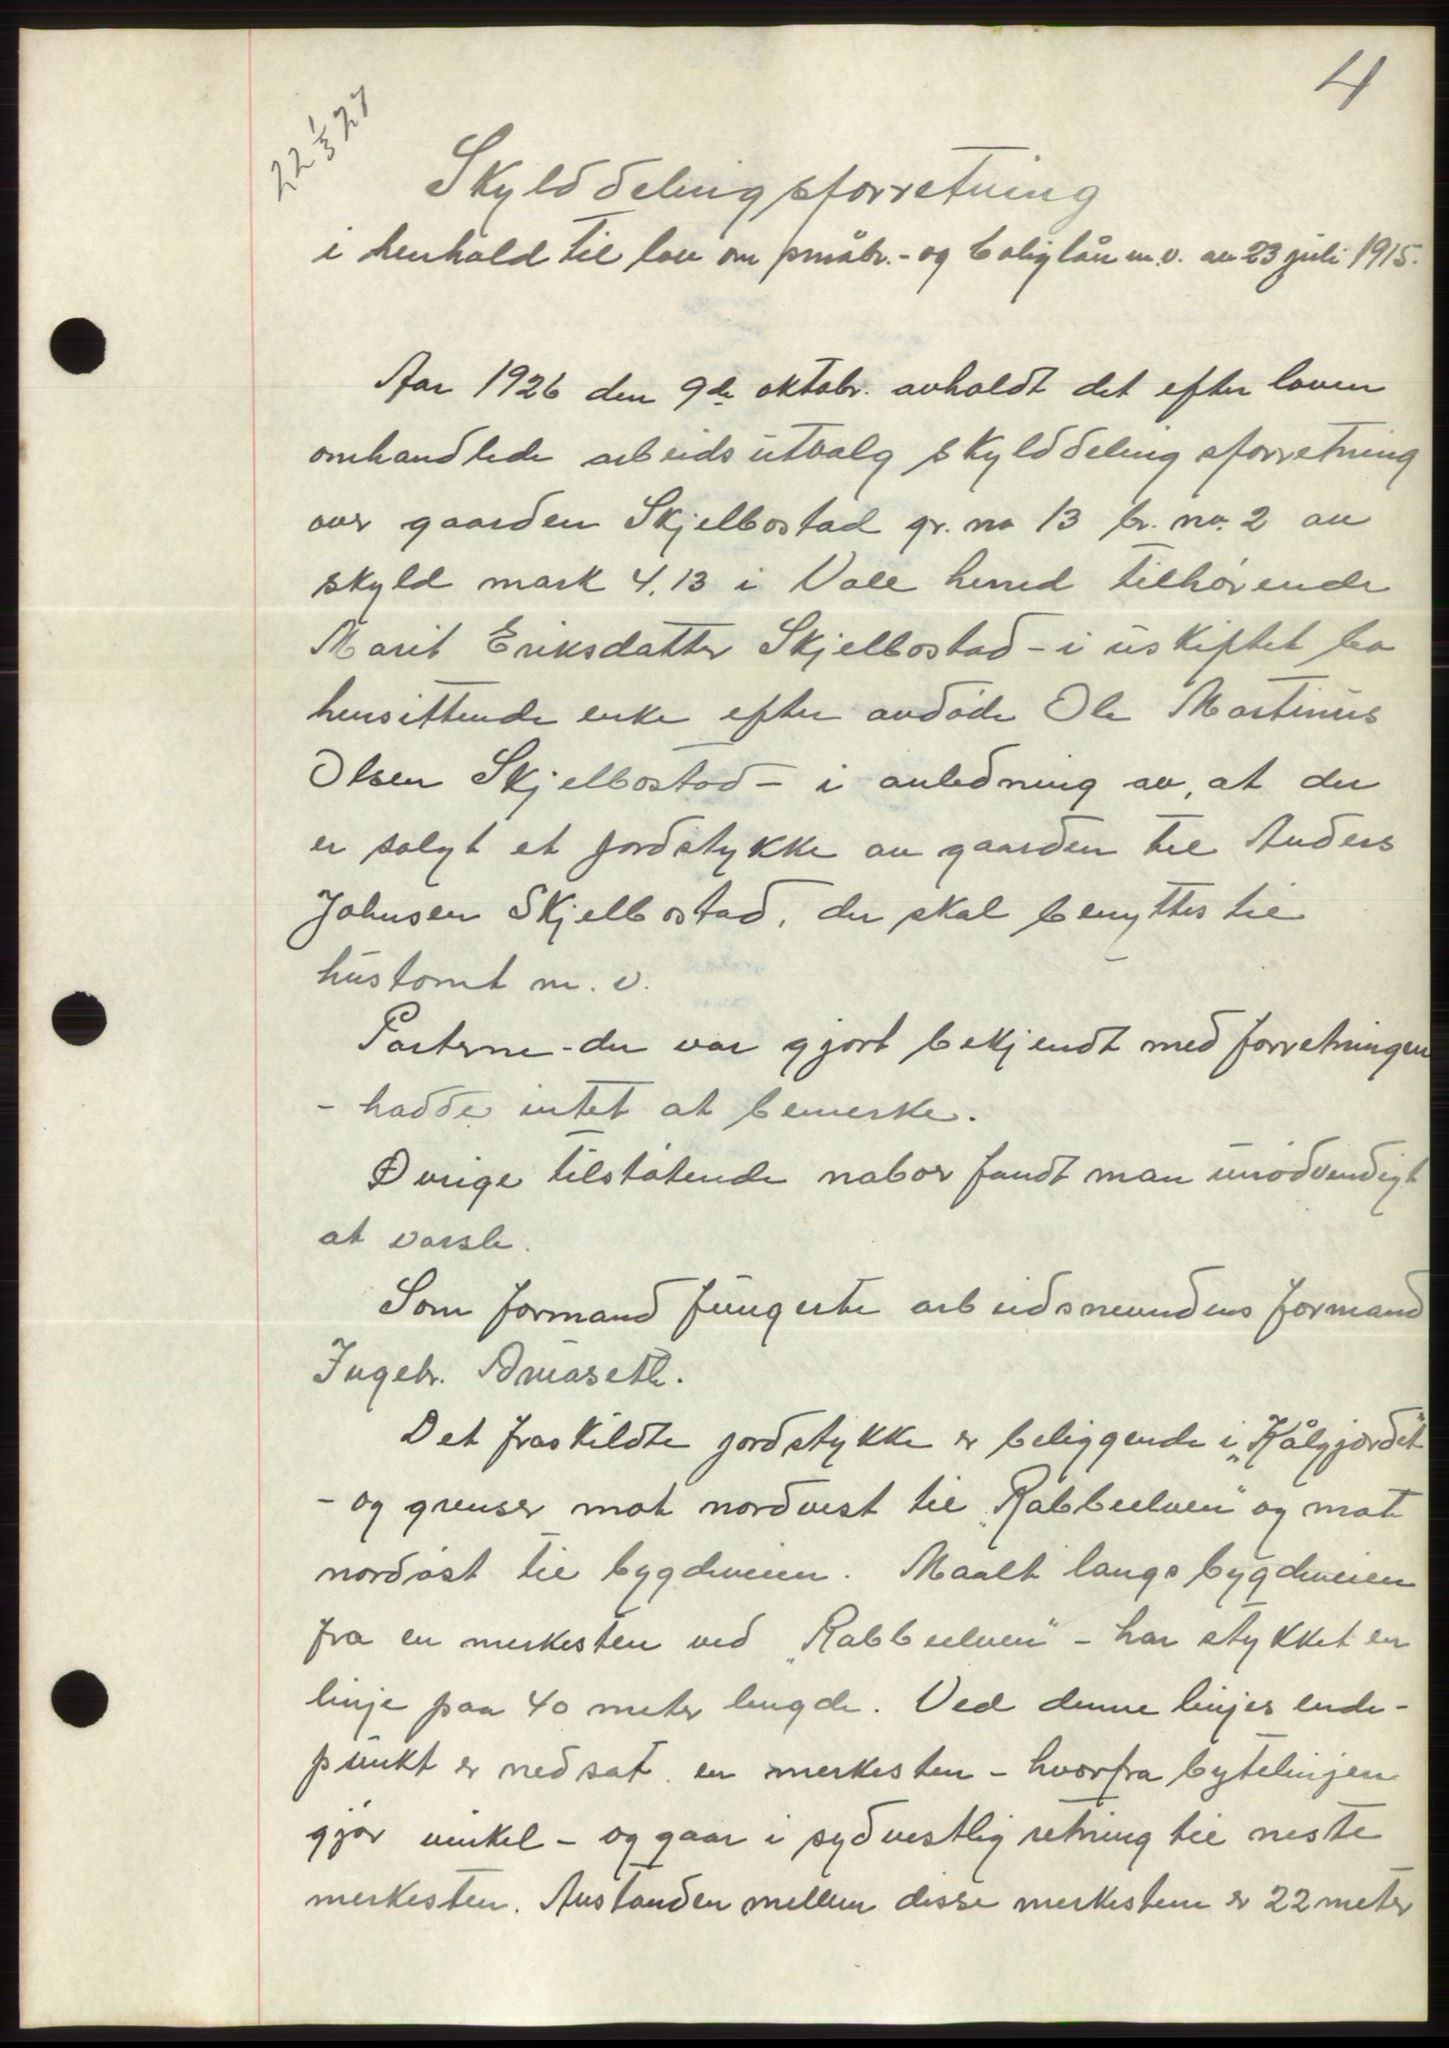 4
22 1/3 27
Skylddelingsforretning
i henhold til lov om småbr.- og boliglån m.v. av 23 juli 1915.
Aar 1926 den 9de oktobr. avholdt det efter loven
omhandlede arbeidsutvalg skylddelingsforretning
over gaarden Skjelbostad gr. no 13 br. no. 2 av
skyld mark 4.13 i Voll herred tilhørende
Marit Eriksdatter Skjelbostad - i uskiftet bo
hensittende enke efter avdøde Ole Martinus
Olsen Skjelbostad - i anledning av, at der
er solgt et jordstykke av gaarden til Anders
Johnsen Skjelbostad, der skal benyttes til
hustomt m. v.
Parterne - der var gjort bekjendt med forretningen
- hadde intet at bemerke.
Øvrige tilstøtende naboer fandt man unødvendigt
at varsle.
Som formand fungerte arbeidsnevndens formand
Ingebr.
Det fraskildte jordstykke er beliggende i "Kålgjordet"
- og grenser mot nordvest til "Rabbeelven" og mot
nordøst til bygdeveien. Maalt langs bygdeveien
fra en merkesten ved "Rabbeelven" - har stykket en
linje paa 40 meter lengde. Ved denne linjes ende-
punkt er nedsat en merkesten - hvorfra bytelinjen
gjør vinkel - og gaar i sydvestlig retning til neste
merkesten. Avstanden mellem disse merkestene er 22 meter